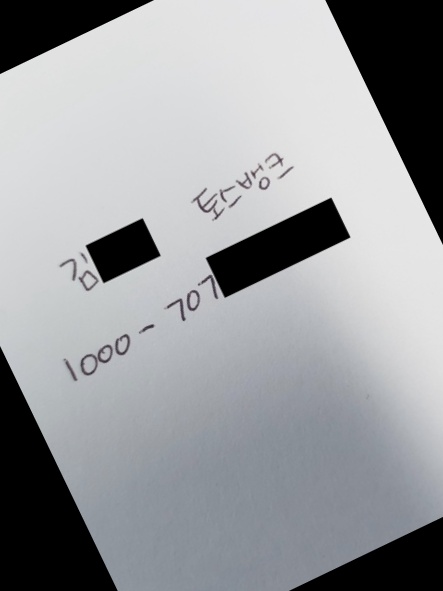 김 토스뱅크
1000-707